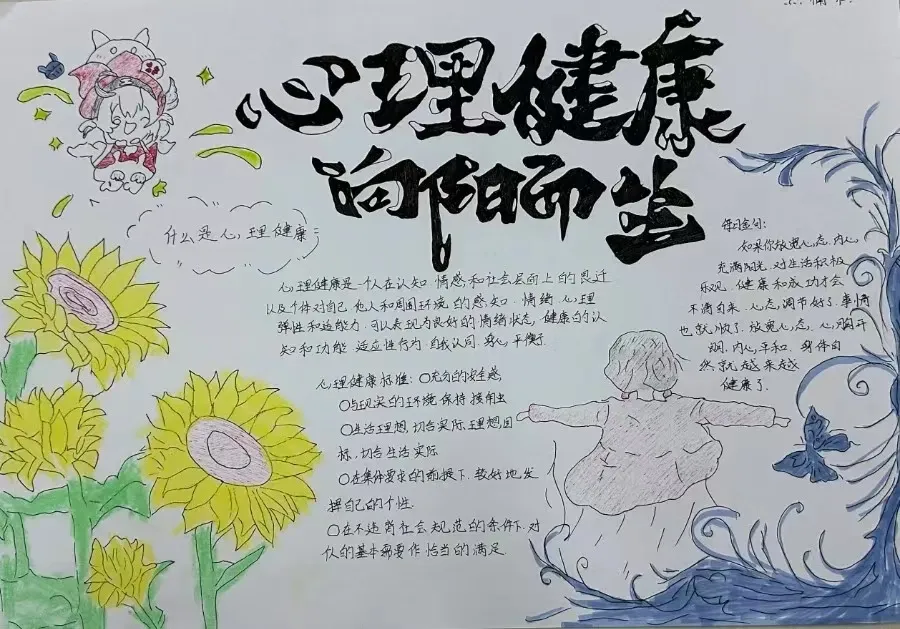 心理健康
向阳而生
什么是心理健康
心理健康是一个人在认知 情感和社会层面上的
以及个体对自己 他人和周围环境的感知 情绪 心理
弹性和适能力 可以表现为良好的情绪状态, 健康的认
知和功能 适应性行为 自我认同 身心平衡
心理健康标准: ○充分的安全感,
○与现实的环境保持接触
○生活理想, 切合实际, 理想目
标, 切合生活实际
○在集体要求的前提下, 较好地发
挥自己的个性.
○在不违背社会规范的条件下, 对
个人的基本需要作恰当的满足
每日金句:
如果你放宽心态, 内心
充满阳光, 对生活积极
乐观, 健康和成功才会
不请自来, 心态调节好了, 事情
也就顺了, 放宽心态, 心胸开
阔, 内心平和, 身体自
然就越来越
健康了.